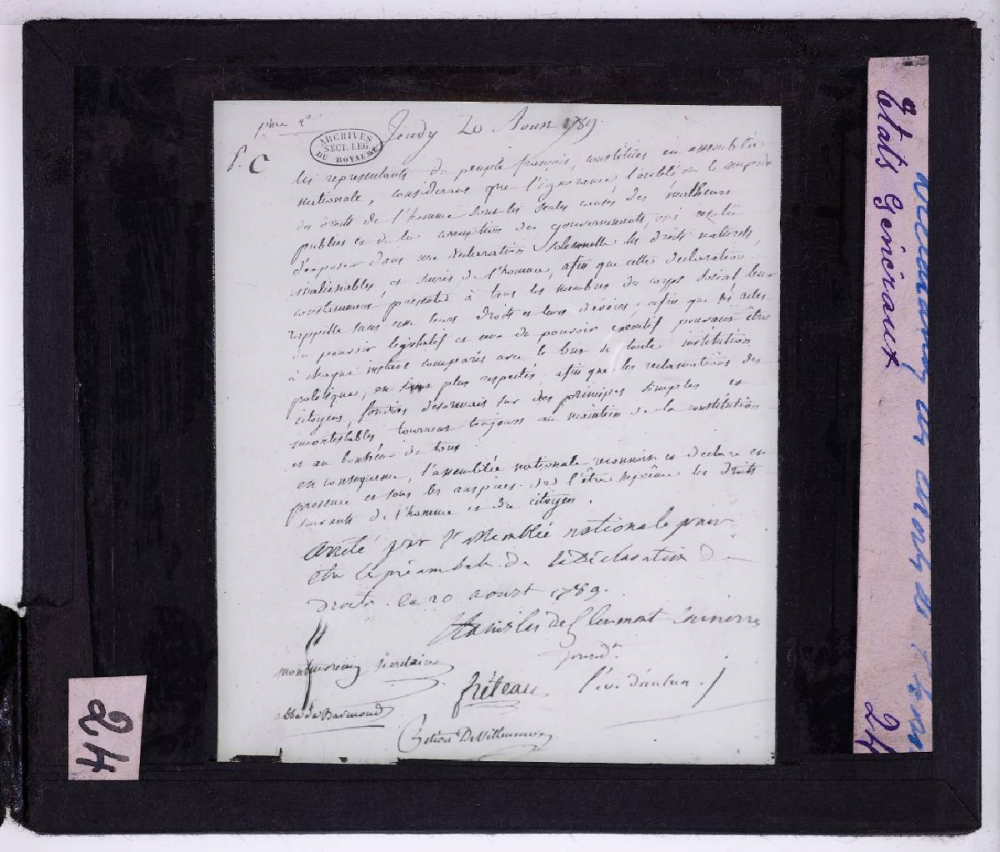 Jeudy 20 Aoust 1789.
ARCHIVES
SECT. LEG.
DU ROYAUME
P. C
les representants du peuple françois, constitués en assemblée
nationale, considerant que l'ignorance l'oubli ou le mepris
des droits de l'homme sont les seules causes des malheurs
publics et de la corruption des gouvernements, ont resolu
d'exposer dans une declaration solemnelle les droits naturels,
inalienables, et sacrés de l'homme, afin que cette declaration
constamment presente à tous les membres du corps social leur
rappelle sans cesse leurs droits et leurs devoirs; afin que les actes
du pouvoir legislatif et ceux du pouvoir executif pouvant être
à chaque instant comparés avec le but de toute institution
politique, en soient plus respectés, afin que les reclamations des
citoyens, fondées desormais sur des principes simples et
incontestables tournent toujours au maintien de la constitution
et au bonheur de tous.
en consequence, l'assemblée nationale reconnoit et declare en
presence et sous les auspices de l'être suprême les droits
suivants de l'homme et du citoyen.
arrêté par l'assemblée nationale pour
être le préambule de la Déclaration de
droits. ce 20 aoust 1789.
Stanislas de Clermont Tonnerre
présdt.
montmorency secrétaire
fréteau
l'év. d'autun
abbé de Barmond
Petion De Villeneuve
24
États Généraux
24